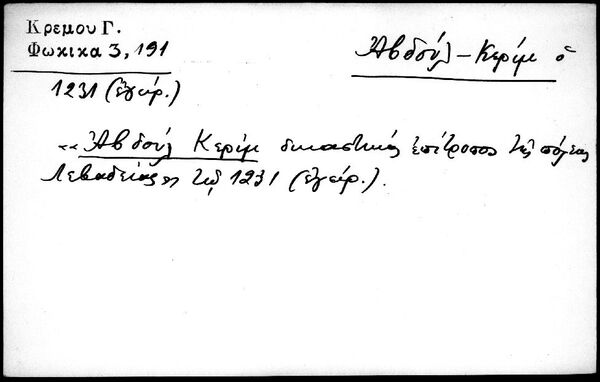 Κρεμου Γ.
Φωκικα 3, 191
Ἀβδούλ-Κερίμ ὁ
1231 (ἐγίρ.)
«Ἀβδούλ Κερίμ δικαστικός ἐπίτροπος τῆς πόλεως
Λεβαδείας» τῷ 1231 (ἐγίρ.).